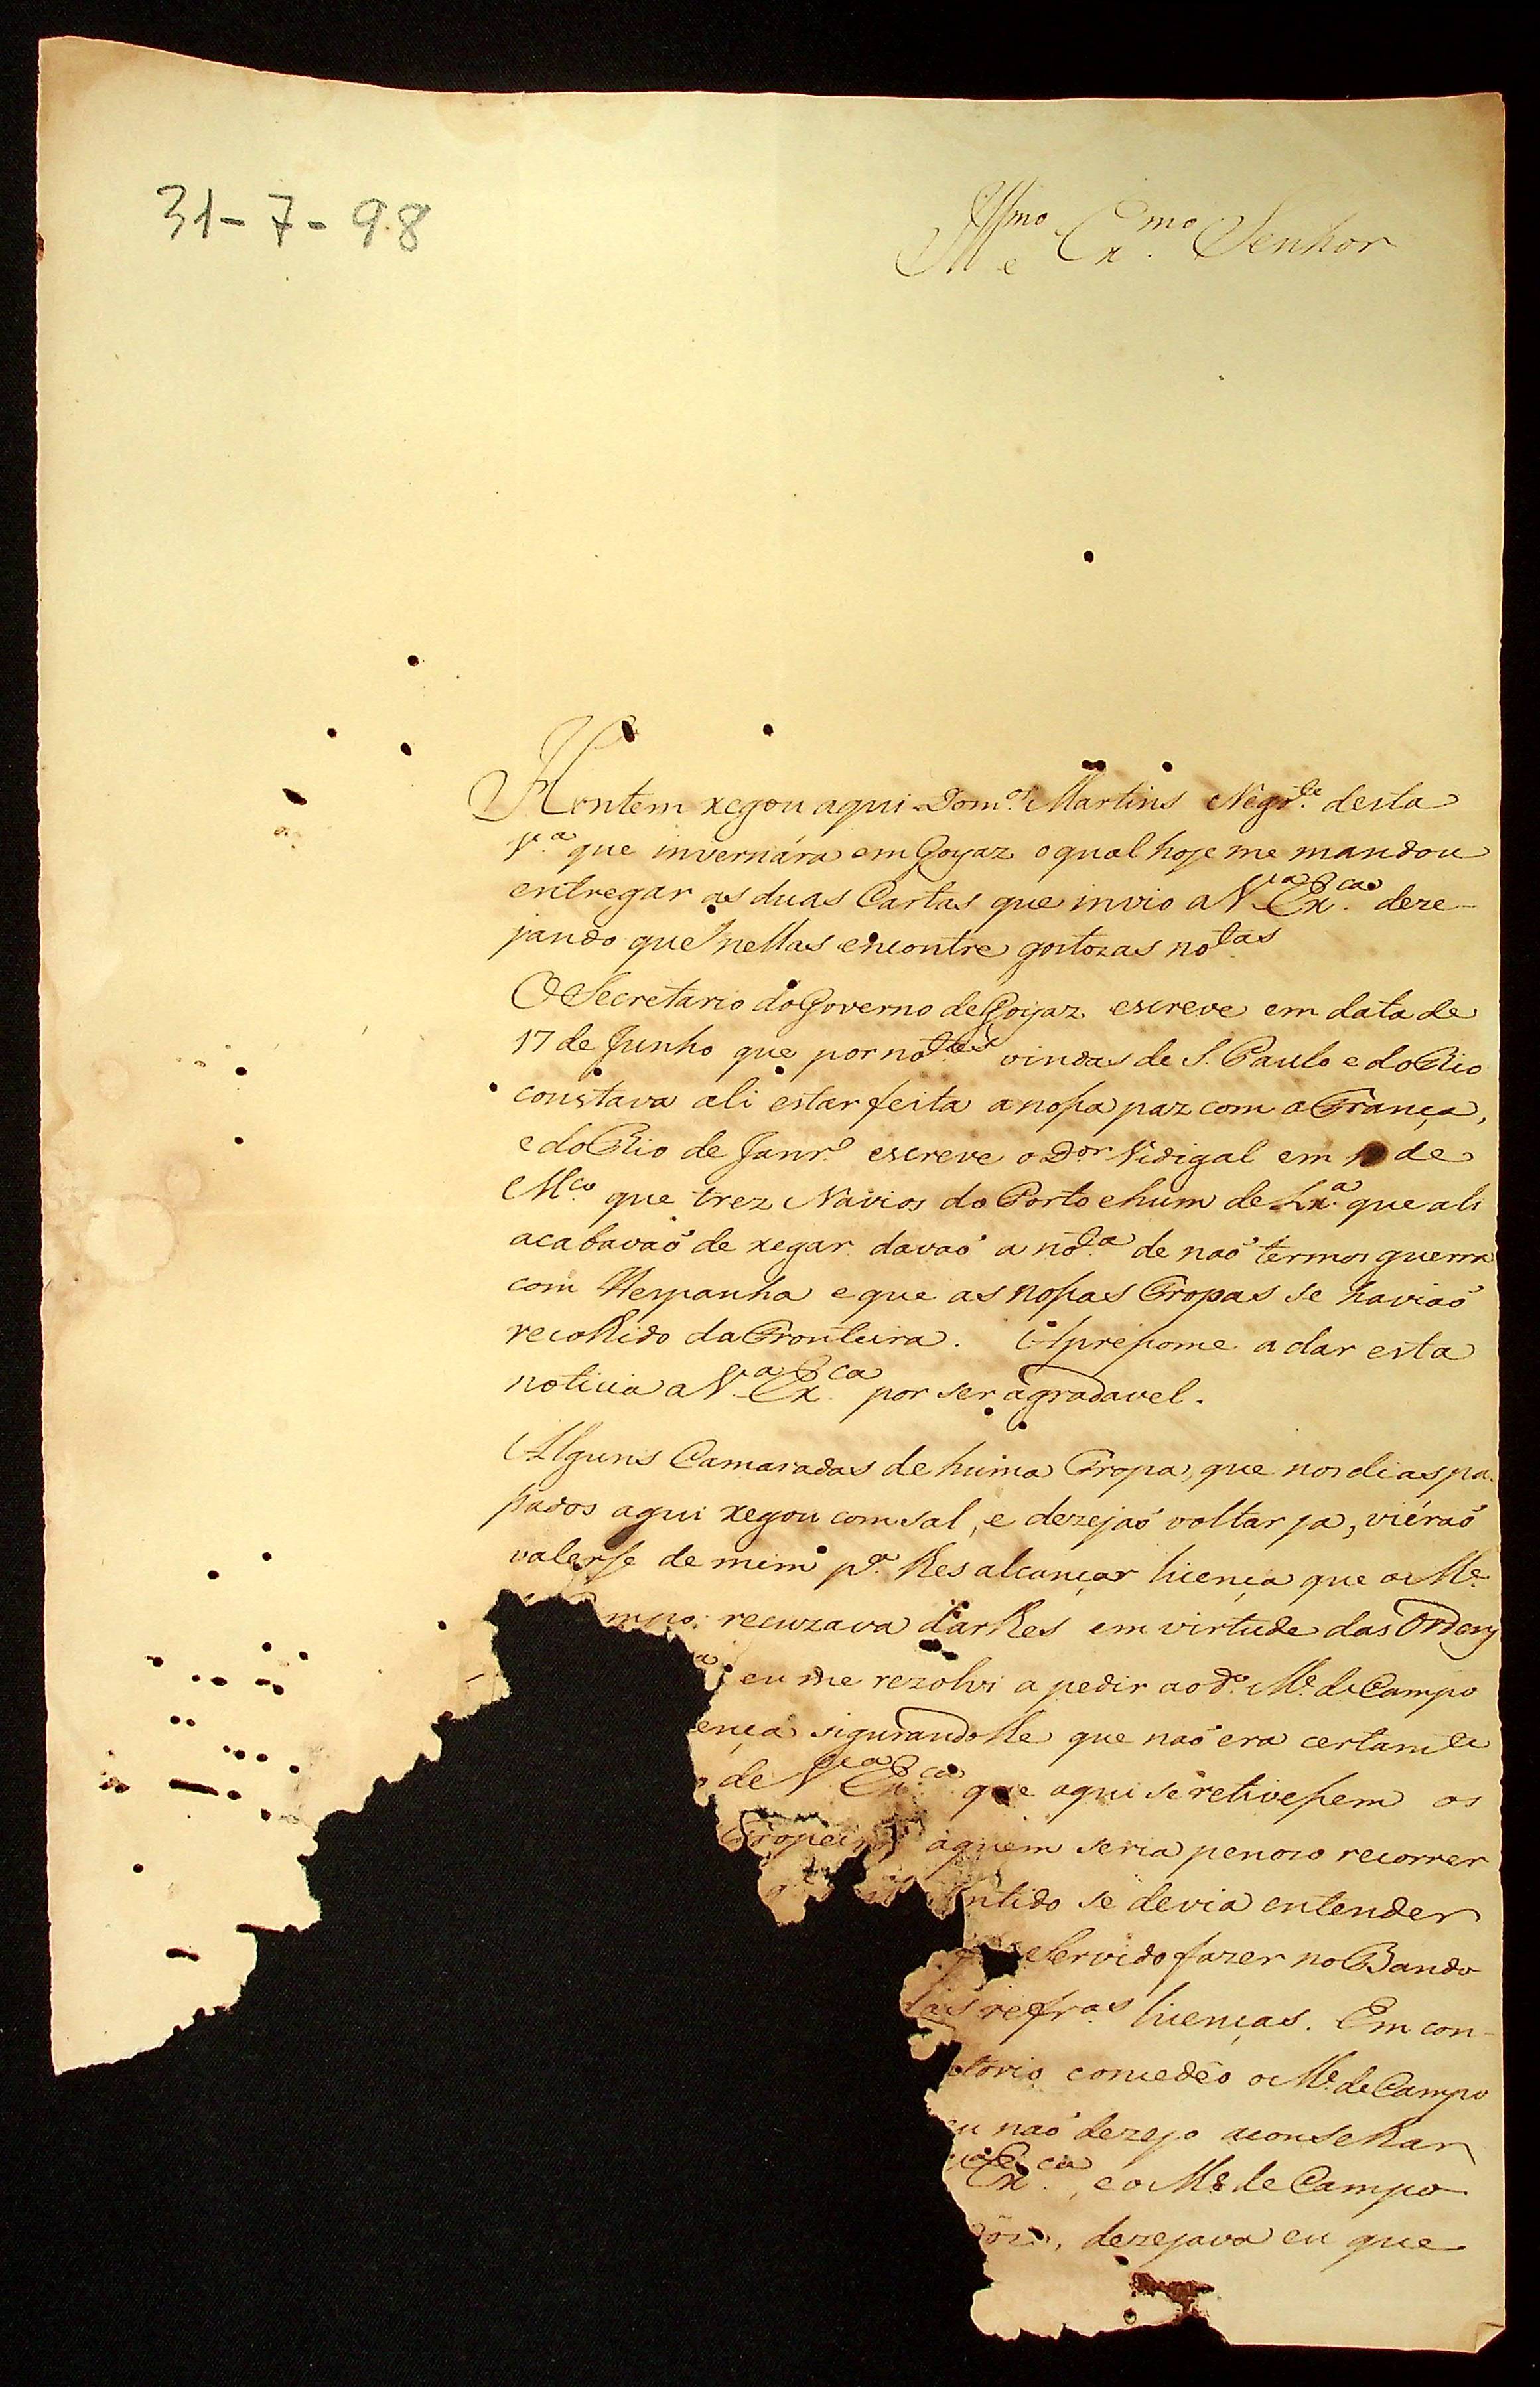 31-7-98
Illmo e Exmo Senhor
Hontem xegou aqui Domos Martins Negte desta
Va que invernára em Goyaz o qual hoje me mandou
entregar as duas Cartas que invio a Va Exca deze-
jando que nellas encontre gostozas notas
O Secretario do Governo de Goyaz escreve em data de
17 de Junho que por notas vindas de S. Paulo e do Rio
constava ali estar feita a nossa paz com a França,
e do Rio de Janro escreve o Dor Vidigal em de
Mço que trez Navios do Porto e hum de Lxa que ali
acabavaõ de xegar davaõ a nota de naõ termos guerra
com Hespanha e que as nossas Tropas se haviaõ
recolhido da Fronteira. Apressome a dar esta
noticia a Va Exca por ser agradavel.
Alguns Camaradas de huma Tropa, que nos dias pa-
ssados aqui xegou com sal, e dezejaõ voltar ja, viéraõ
valersse de mim pa lhes alcançar licença que o Me
mpo recuzava darlhes em virtude das Ordens
a eu me rezolvi a pedir ao do Me de Campo
ença sigurandolhe que naõ era certamte
de Va Exca que aqui se retivessem os
Tropeiros aquem seria penozo recorrer
ntido se devia entender
Servido fazer no Bando
das refras licenças. Em con-
torio concedêo o Me de Campo
eu naõ dezejo aconselhar
Exca, e o Me de Campo
, dezejava eu que